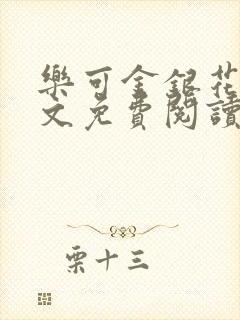 樂可金銀花
文免費閱讀
栗十三